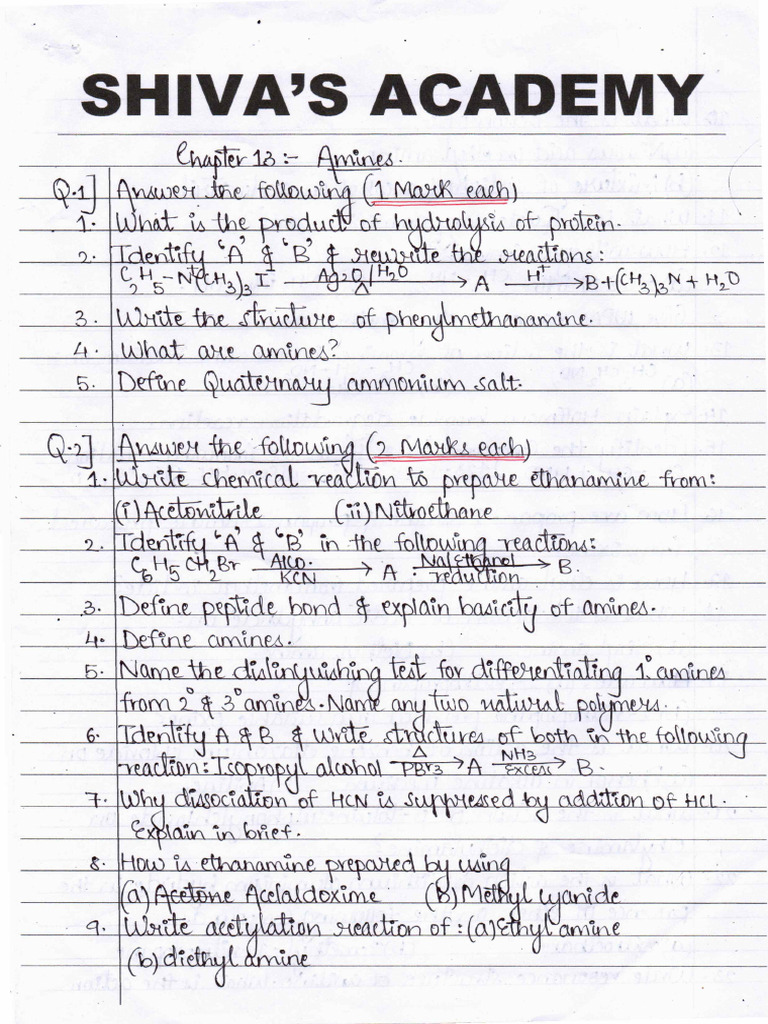 SHIVA'S ACADEMY
Chapter 13 :- Amines.
Q.1] Answer the following (1 Mark each)
1. What is the product of hydrolysis of protein.
2. Identify 'A' & 'B' & rewrite the reactions:
C2H5-N+(CH3)3I- Ag2O/H2O Δ → A H+ → B+(CH3)3N + H2O
3. Write the structure of phenylmethanamine.
4. What are amines?
5. Define Quaternary ammonium salt.
Q.2] Answer the following (2 Marks each)
1. Write chemical reaction to prepare ethanamine from:
(i) Acetonitrile (ii) Nitroethane
2. Identify 'A' & 'B' in the following reactions:
C6H5CH2Br Alco. KCN → A Na/Ethanol reduction → B.
3. Define peptide bond & explain basicity of amines.
4. Define amines.
5. Name the distinguishing test for differentiating 1° amines
from 2° & 3° amines. Name any two natural polymers.
6. Identify A & B & write structures of both in the following
reaction: Isopropyl alcohol Δ PBr3 → A NH3 excess → B.
7. Why dissociation of HCN is suppressed by addition of HCL.
Explain in brief.
8. How is ethanamine prepared by using
(a) Acetone Acelaldoxime (b) Methyl cyanide
9. Write acetylation reaction of : (a) Ethyl amine
(b) diethyl amine